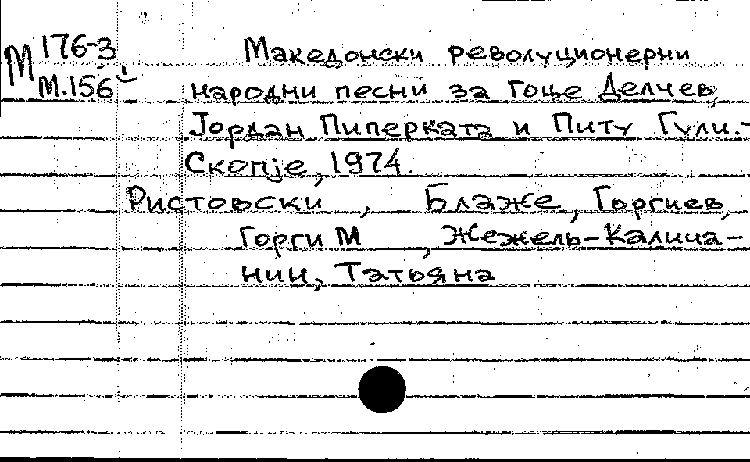 М 176-3
М.156
Македонски револуционерни
народни песни за Гоце Делчев,
Јордан Пиперката и Питу Гули.-
Скопје, 1974.
Ристовски, Блаже, Горгиев,
Горги М, Жежель-Калица-
нин, Татьяна